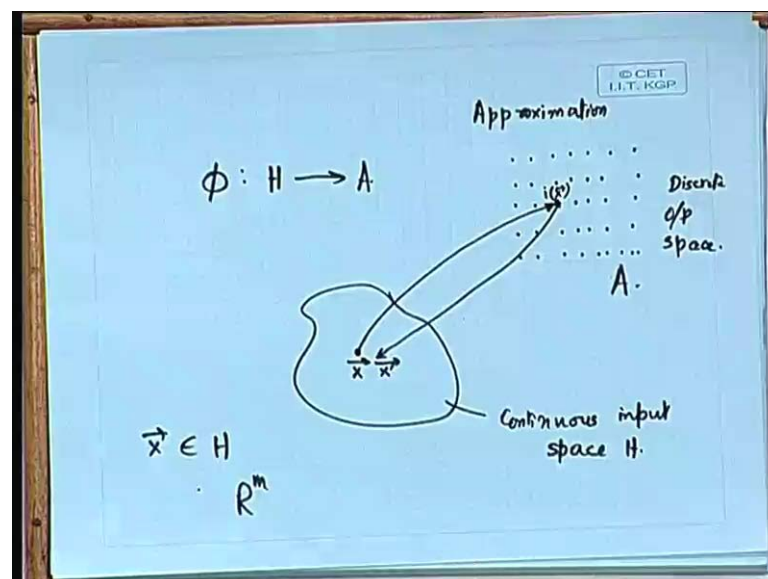 © CET
I.I.T. KGP
Approximation
ϕ : H → A
i(x⃗)
Discrete
o/p
space.
A.
x⃗ x⃗'
Continuous input
space H.
x⃗ ∈ H
R^m